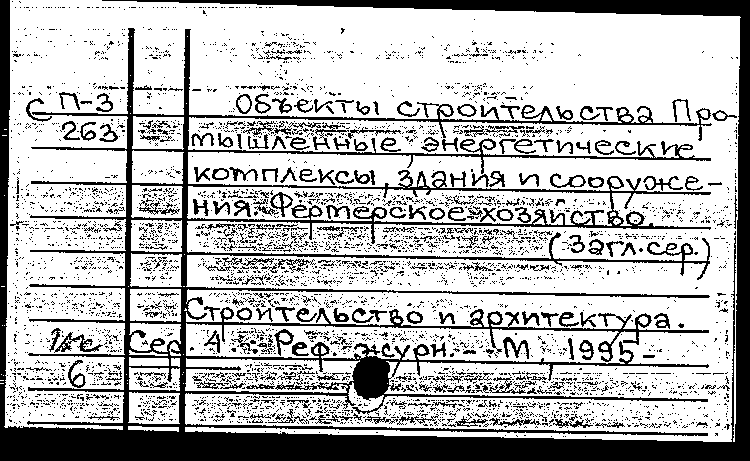 С П-3 Объекты строительства Про-
263 мышленные, энергетические
комплексы, здания и сооруже-
ния. Фермерское хозяйство.
(Загл. сер.)
Строительство и архитектура.
Сер. 4... Реф. журн. - М., 1995 -
6